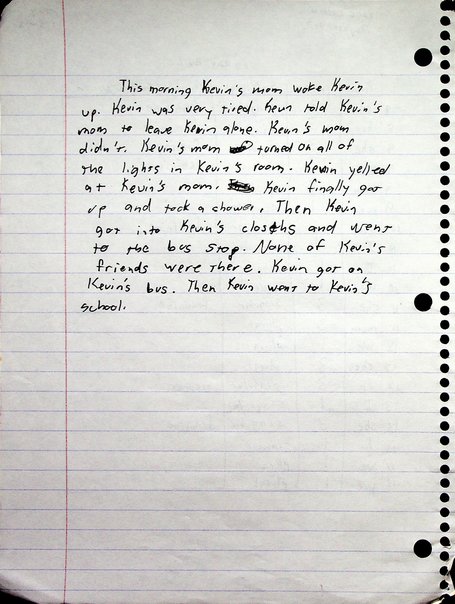 This morning Kevin's mom woke Kevin
up. Kevin was very tired. Kevin told Kevin's
mom to leave Kevin alone. Kevin's mom
didn't. Kevin's mom turned on all of
the lights in Kevin's room. Kevin yelled
at Kevin's mom. Kevin finally got
up and took a shower. Then Kevin
got into Kevin's closths and went
to the bus stop. None of Kevin's
friends were there. Kevin got on
Kevin's bus. Then Kevin went to Kevin's
school.